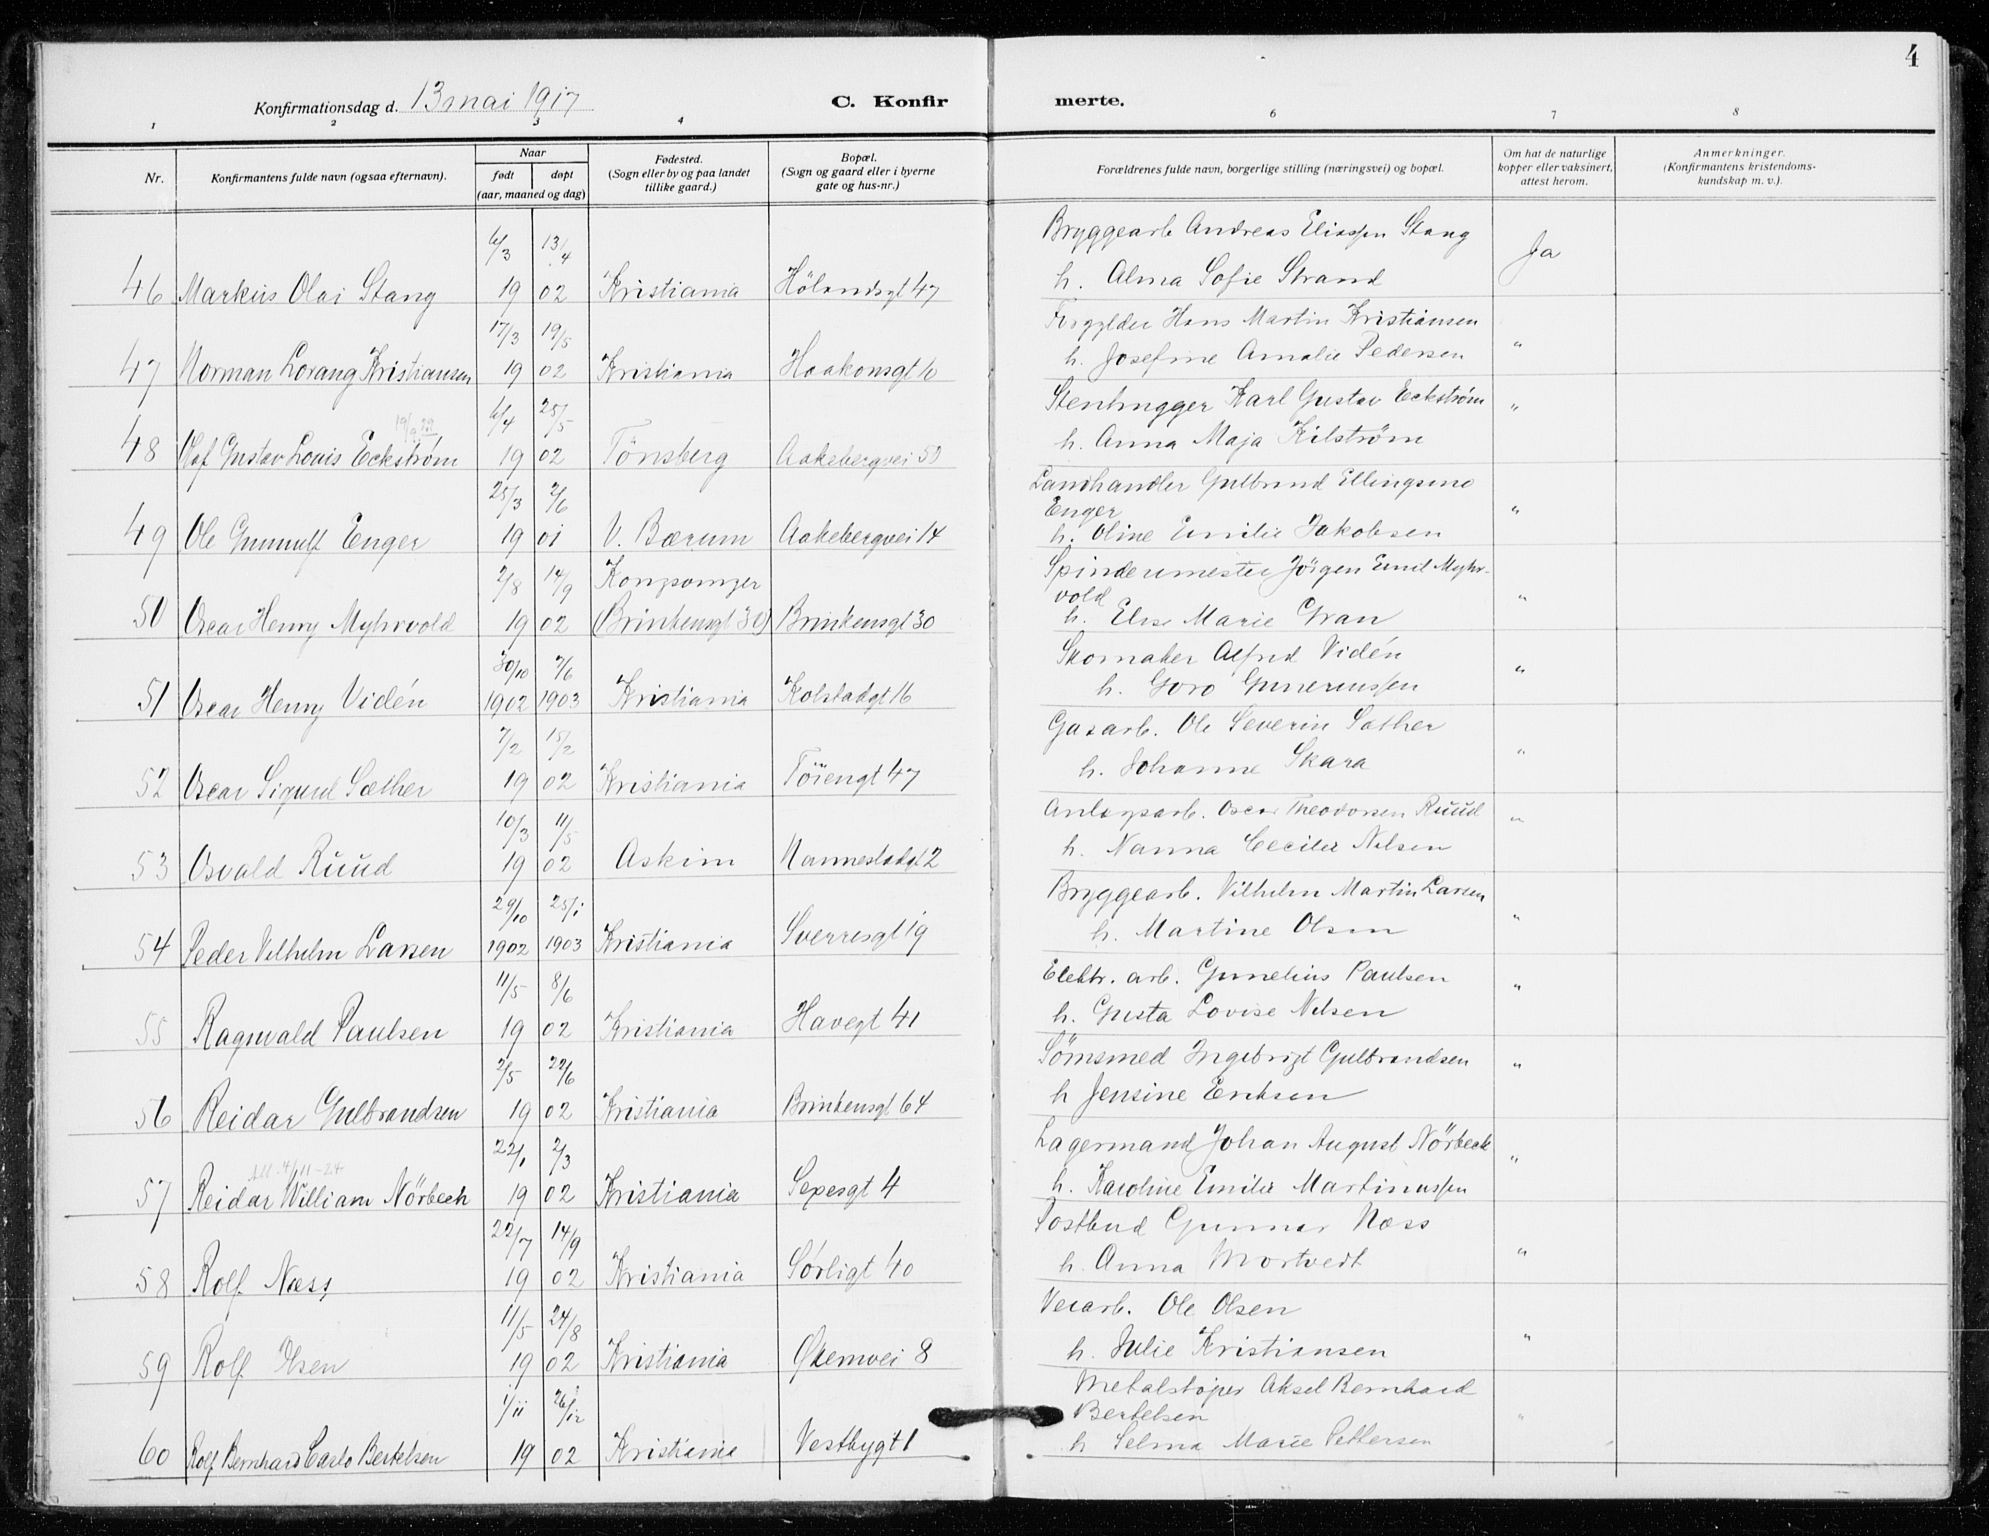 4
Konfirmationsdag d. 13 mai 1917
C. Konfir
merte.
1 2 3 4 6 7 8
Nr.
Konfirmantens fulde navn (ogsaa efternavn).
Naar
født døpt
(aar, maaned og dag)
Fødested.
(Sogn eller by og paa landet
tillike gaard.)
Bopæl.
(Sogn og gaard eller i byerne
gate og hus-nr.)
Forældrenes fulde navn, borgerlige stilling (næringsvei) og bopæl.
Om hat de naturlige
kopper eller vaksinert,
attest herom.
Anmerkninger.
(Konfirmantens kristendoms-
kundskap m. v.).
6/3 13/4 Bryggearb Andreas Eliassen Stang
46 Markus Olai Stang 19 02 Kristiania Hölandsgt 47 h. Alma Sofie Strand Ja
17/3 19/5 Forgylder Hans Martin Kristiansen
47 Norman Lorang Kristiansen 19 02 Kristiania Haakonsgt 6 h. Josefine Amalie Pedersen "
19/9 22
6/4 25/5 Stenhugger Karl Gustav Eckström
48 Olaf Gustav Louis Eckström 19 02 Tönsberg Aakebergvei 50 h. Anna Maja Kilström "
25/3 2/6 Landhandler Gulbrand Ellingseno
Enger
49 Ole Gunnulf Enger 19 01 V. Bærum Aakebergvei 14 h. Oline Emilie Jakobsen "
2/8 14/9 Kongsomger Spinderimester Jörgen Emil Myhr-
vold
50 Oscar Henry Myhrvold 19 02 (Brinkensgt 30) Brinkensgt 30 h. Elise Marie Gran "
30/10 7/6 Skomaker Alfred Vidén
51 Oscar Henry Vidén 1902 1903 Kristiania Kolstadgt 16 h. Goro Gunerussen "
7/2 15/2 Gasarb. Ole Severin Sæther
52 Oscar Sigurd Sæther 19 02 Kristiania Töiengt 47 h. Johanne Skara "
10/3 11/5 Anlægsarb. Oscar Theodorsen Ruud
53 Osvald Ruud 19 02 Askim Nannestadgt 2 h. Nanna Cecilie Nilsen "
29/10 25/1 Bryggearb. Vilhelm Martin Larsen
54 Peder Vilhelm Larsen 1902 1903 Kristiania Sverresgt 19 h. Martine Olsen "
11/5 8/6 Elektr. arb. Gunelius Paulsen
55 Ragnvald Paulsen 19 02 Kristiania Havegt 41 h. Gusta Lovise Nilsen "
2/5 22/6 Sömsmed Ingebrigt Gulbrandsen
56 Reidar Gulbrandsen 19 02 Kristiania Brinkensgt 64 h Jensine Eriksen "
22/1 2/3 Lagermand Johan August Nörbeck
Att. 4/11-24
57 Reidar William Nörbeck 19 02 Kristiania Sexesgt 4 h. Karoline Emilie Martinussen "
22/7 14/9 Postbud Gunnar Næss
58 Rolf Næss 19 02 Kristiania Sørligt 40 h. Anna Mortvedt "
11/5 24/8 Veiarb. Ole Olsen
59 Rolf Olsen 19 02 Kristiania Økernvei 8 h. Julie Kristiansen "
1/11 26/12 Metalstøper Aksel Bernhard
Bertelsen
60 Rolf Bernhard Carlo Bertelsen 19 02 Kristiania Vestbygt 1 h Selma Marie Pettersen "